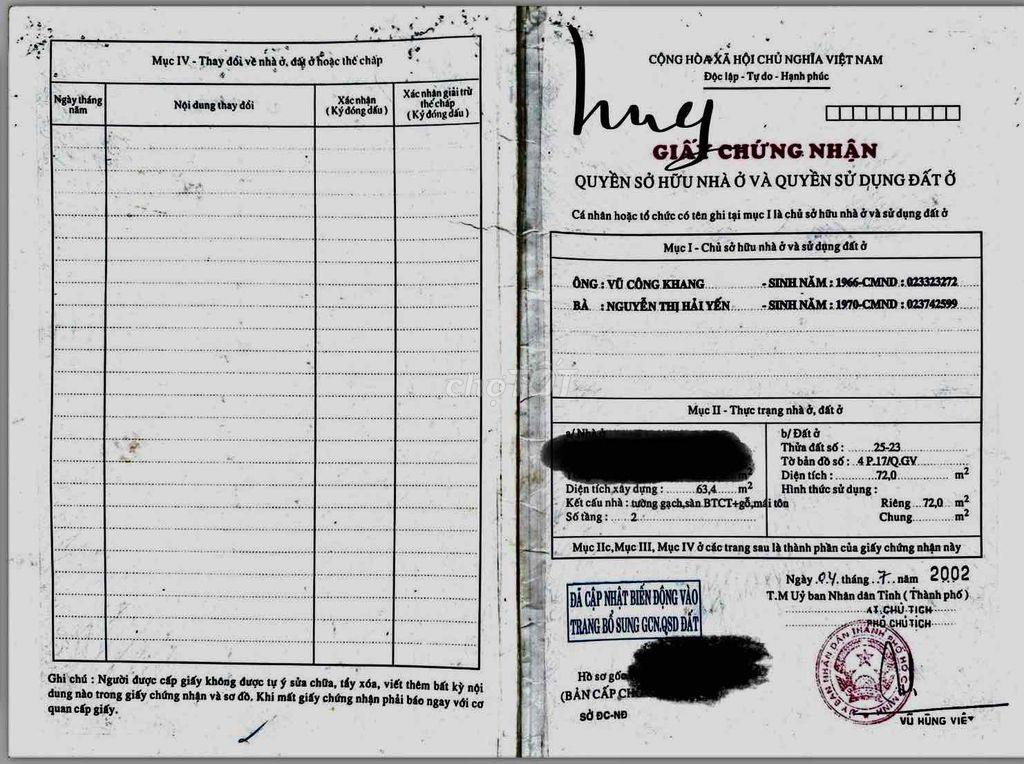 Mục IV - Thay đổi về nhà ở, đất ở hoặc thế chấp
Ngày tháng năm
Nội dung thay đổi
Xác nhận
( Ký đóng dấu )
Xác nhận giải trừ thế chấp
( Ký đóng dấu )
Ghi chú : Người được cấp giấy không được tự ý sửa chữa, tẩy xóa, viết thêm bất kỳ nội
dung nào trong giấy chứng nhận và sơ đồ. Khi mất giấy chứng nhận phải báo ngay với cơ
quan cấp giấy.
CỘNG HÒA XÃ HỘI CHỦ NGHĨA VIỆT NAM
Độc lập - Tự do - Hạnh phúc
huy
GIẤY CHỨNG NHẬN
QUYỀN SỞ HỮU NHÀ Ở VÀ QUYỀN SỬ DỤNG ĐẤT Ở
Cá nhân hoặc tổ chức có tên ghi tại mục I là chủ sở hữu nhà ở và sử dụng đất ở
Mục I - Chủ sở hữu nhà ở và sử dụng đất ở
ÔNG : VŨ CÔNG KHANG - SINH NĂM : 1966-CMND : 023323272
BÀ : NGUYỄN THỊ HẢI YẾN - SINH NĂM : 1970-CMND : 023742599
chợTỐT
Mục II - Thực trạng nhà ở, đất ở
a/ Nhà ở
Diện tích xây dựng : 63,4 m²
Kết cấu nhà : tường gạch,sàn BTCT+gỗ,mái tôn
Số tầng : 2
b/ Đất ở
Thửa đất số : 25-23
Tờ bản đồ số : 4 P.17/Q.GV
Diện tích : 72,0 m²
Hình thức sử dụng :
Riêng 72,0 m²
Chung m²
Mục IIc,Mục III, Mục IV ở các trang sau là thành phần của giấy chứng nhận này
Ngày 04 tháng 7 năm 2002
T.M Uỷ ban Nhân dân Tỉnh ( Thành phố )
KT.CHỦ TỊCH
PHÓ CHỦ TỊCH
ĐÃ CẬP NHẬT BIẾN ĐỘNG VÀO
TRANG BỔ SUNG GCN,QSD ĐẤT
Hồ sơ gốc
(BẢN CẤP CH
SỞ ĐC-NĐ
ỦY BAN NHÂN DÂN THÀNH PHỐ HỒ CHÍ MINH
VŨ HÙNG VIỆT